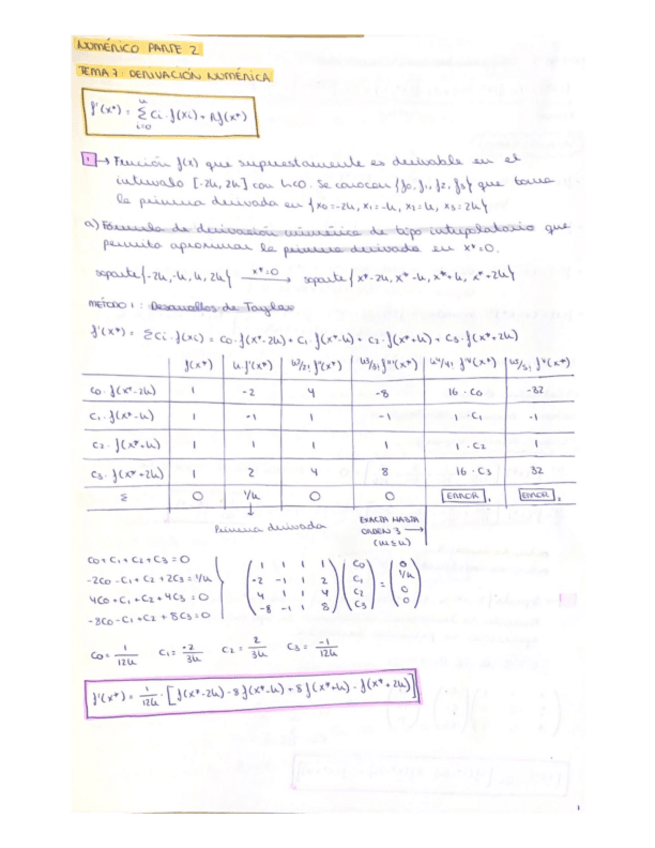 NUMÉRICO PARTE 2
TEMA 7: DERIVACIÓN NUMÉRICA
f'(x*) = Σ Ci · f(xi) + Rf(x*)
n
i=0
1 → Función f(x) que supuestamente es derivable en el
intervalo [-2h, 2h] con h<0. Se conocen {f0, f1, f2, f3} que toma
la primera derivada en {x0=-2h, x1=-h, x2=h, x3=2h}
a) Fórmula de derivación numérica de tipo interpolatorio que
permita aproximar la primera derivada en x*=0.
soporte {-2h, -h, h, 2h} x*=0 → soporte {x*-2h, x*-h, x*+h, x*+2h}
MÉTODO 1: Desarrollos de Taylor
f'(x*) = ΣCi · f(xi) = C0 · f(x*-2h) + C1 · f(x*-h) + C2 · f(x*+h) + C3 · f(x*+2h)
f(x*) h·f'(x*) h²/2! f''(x*) h³/3! f'''(x*) h⁴/4! f'ᵛ(x*) h⁵/5! fᵛ(x*)
C0 · f(x*-2h) 1 -2 4 -8 16 · C0 -32
C1 · f(x*-h) 1 -1 1 -1 1 · C1 -1
C2 · f(x*+h) 1 1 1 1 1 · C2 1
C3 · f(x*+2h) 1 2 4 8 16 · C3 32
Σ 0 1/h 0 0 ERROR, ERROR,
↓
Primera derivada
EXACTA HASTA
ORDEN 3 →
C0 + C1 + C2 + C3 = 0
-2C0 - C1 + C2 + 2C3 = 1/h
4C0 + C1 + C2 + 4C3 = 0
-8C0 - C1 + C2 + 8C3 = 0
1 1 1 1 C0 0
-2 -1 1 2 C1 = 1/h
4 1 1 4 C2 0
-8 -1 1 8 C3 0
C0 = 1/12h C1 = -2/3h C2 = 2/3h C3 = -1/12h
f'(x*) = 1/12h · [f(x*-2h) - 8f(x*-h) + 8f(x*+h) - f(x*+2h)]
1